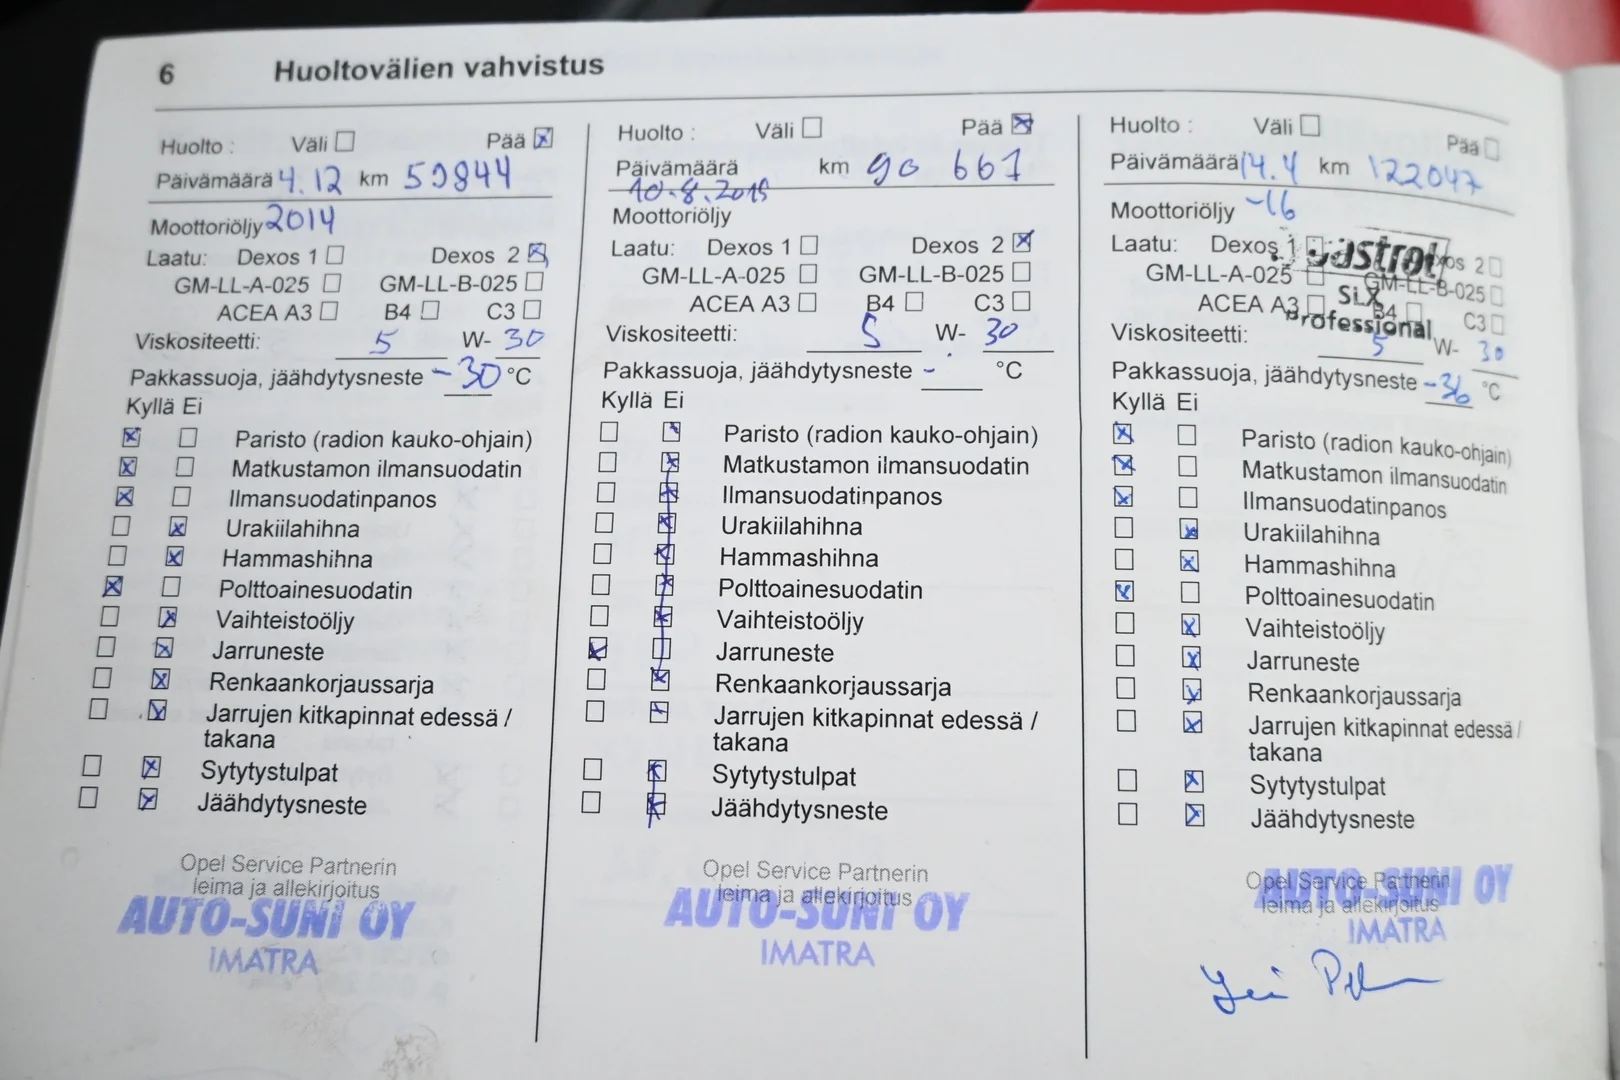 6 Huoltovälien vahvistus
Huolto : Väli Pää
Päivämäärä 4.12 km 59844
Moottoriöljy 2014
Laatu: Dexos 1 Dexos 2
GM-LL-A-025 GM-LL-B-025
ACEA A3 B4 C3
Viskositeetti: 5 W- 30
Pakkassuoja, jäähdytysneste -30 °C
Kyllä Ei
Paristo (radion kauko-ohjain)
Matkustamon ilmansuodatin
Ilmansuodatinpanos
Urakiilahihna
Hammashihna
Polttoainesuodatin
Vaihteistoöljy
Jarruneste
Renkaankorjaussarja
Jarrujen kitkapinnat edessä /
takana
Sytytystulpat
Jäähdytysneste
Opel Service Partnerin
leima ja allekirjoitus
AUTO-SUNI OY
IMATRA
Huolto : Väli Pää
Päivämäärä km 90 661
10.8.2015
Moottoriöljy
Laatu: Dexos 1 Dexos 2
GM-LL-A-025 GM-LL-B-025
ACEA A3 B4 C3
Viskositeetti: 5 W- 30
Pakkassuoja, jäähdytysneste - °C
Kyllä Ei
Paristo (radion kauko-ohjain)
Matkustamon ilmansuodatin
Ilmansuodatinpanos
Urakiilahihna
Hammashihna
Polttoainesuodatin
Vaihteistoöljy
Jarruneste
Renkaankorjaussarja
Jarrujen kitkapinnat edessä /
takana
Sytytystulpat
Jäähdytysneste
Opel Service Partnerin
leima ja allekirjoitus
AUTO-SUNI OY
IMATRA
Huolto : Väli Pää
Päivämäärä 14.4 km 122047
Moottoriöljy -16
Laatu: Dexos 1 Castrol Dexos 2
GM-LL-A-025 SLX GM-LL-B-025
ACEA A3 Professional B4 C3
Viskositeetti: 5 W- 30
Pakkassuoja, jäähdytysneste -36 °C
Kyllä Ei
Paristo (radion kauko-ohjain)
Matkustamon ilmansuodatin
Ilmansuodatinpanos
Urakiilahihna
Hammashihna
Polttoainesuodatin
Vaihteistoöljy
Jarruneste
Renkaankorjaussarja
Jarrujen kitkapinnat edessä /
takana
Sytytystulpat
Jäähdytysneste
Opel Service Partnerin
leima ja allekirjoitus
AUTO-SUNI OY
IMATRA